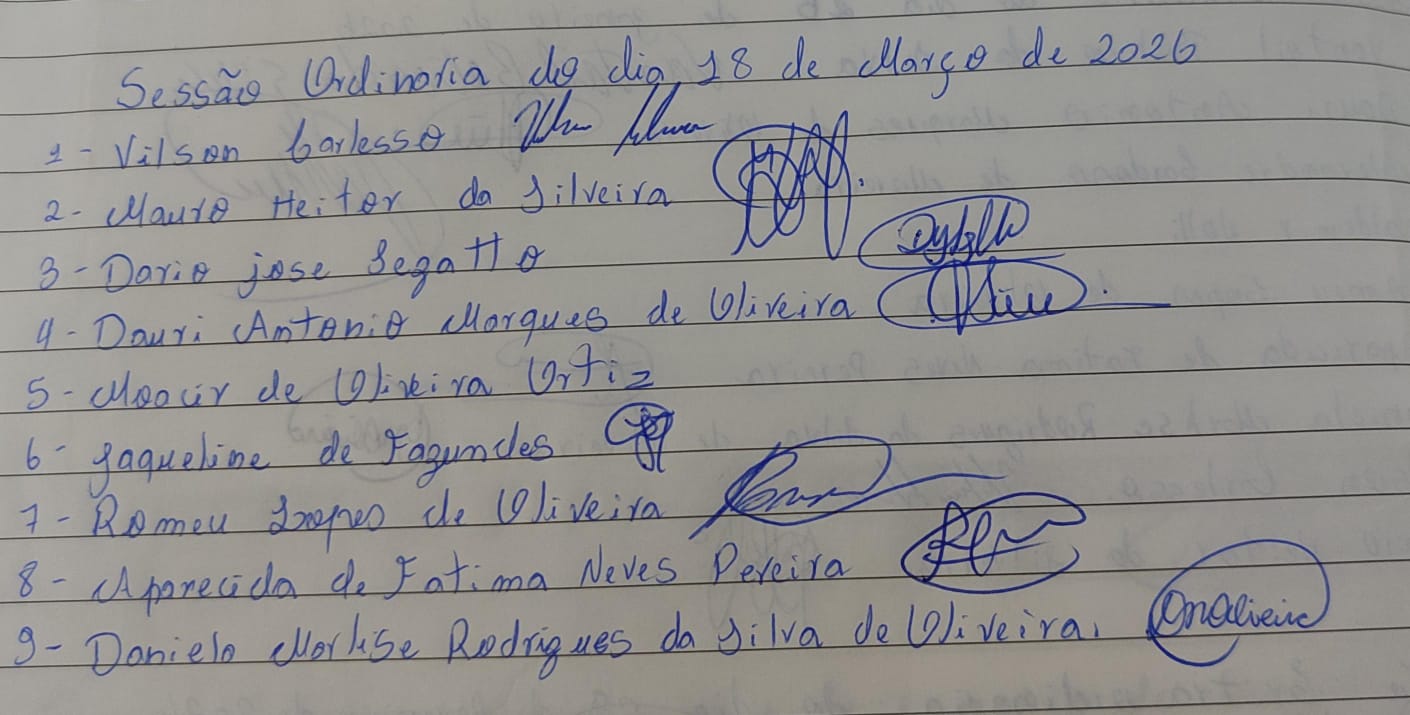 Sessão Ordinaria do dia 18 de Março de 2026
1 - Vilson Carlesso
2 - Mauro Heitor da Silveira
3 - Dario jose Segatto
4 - Dauri Antonio Marques de Oliveira
5 - Moacir de Oliveira Ortiz
6 - Jaqueline de Fagundes
7 - Romeu Lopes de Oliveira
8 - Aparecida de Fatima Neves Pereira
9 - Daniela Marlise Rodrigues da Silva de Oliveira.